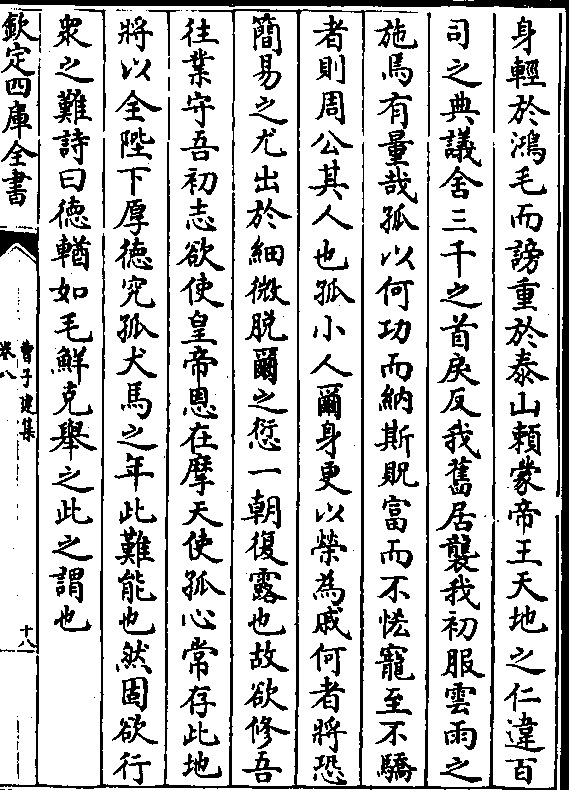 身輕於鴻毛而謗重於泰山頼蒙帝王天地之仁違百
司之典議舍三千之首戾反我舊居襲我初服雲雨之
施焉有量哉孤以何功而納斯貺富而不恡寵至不驕
者則周公其人也孤小人爾身更以榮為戚何者將恐
簡易之尤出於細微脱爾之愆一朝復露也故欲修吾
往業守吾初志欲使皇帝恩在摩天使孤心常存此地
將以全陛下厚德究孤犬馬之年此難能也然固欲行
衆之難詩曰德輶如毛鮮克舉之此之謂也
欽定四庫全書
曹子建集
卷八
十八